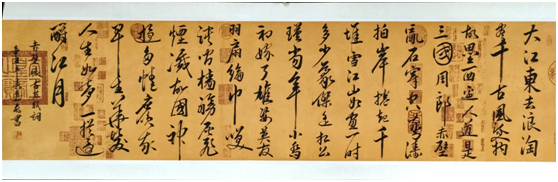 大江東去浪淘
盡千古風流人物
故壘西邊人道是
三國周郎赤壁
亂石穿空驚濤
拍岸捲起千
堆雪江山如畫一時
多少豪傑遙想公
瑾當年小喬
初嫁了雄姿英發
羽扇綸巾笑
談間檣櫓灰飛
煙滅故國神
遊多情應笑我
早生華髮
人生如夢一樽還
酹江月
赤壁懷古